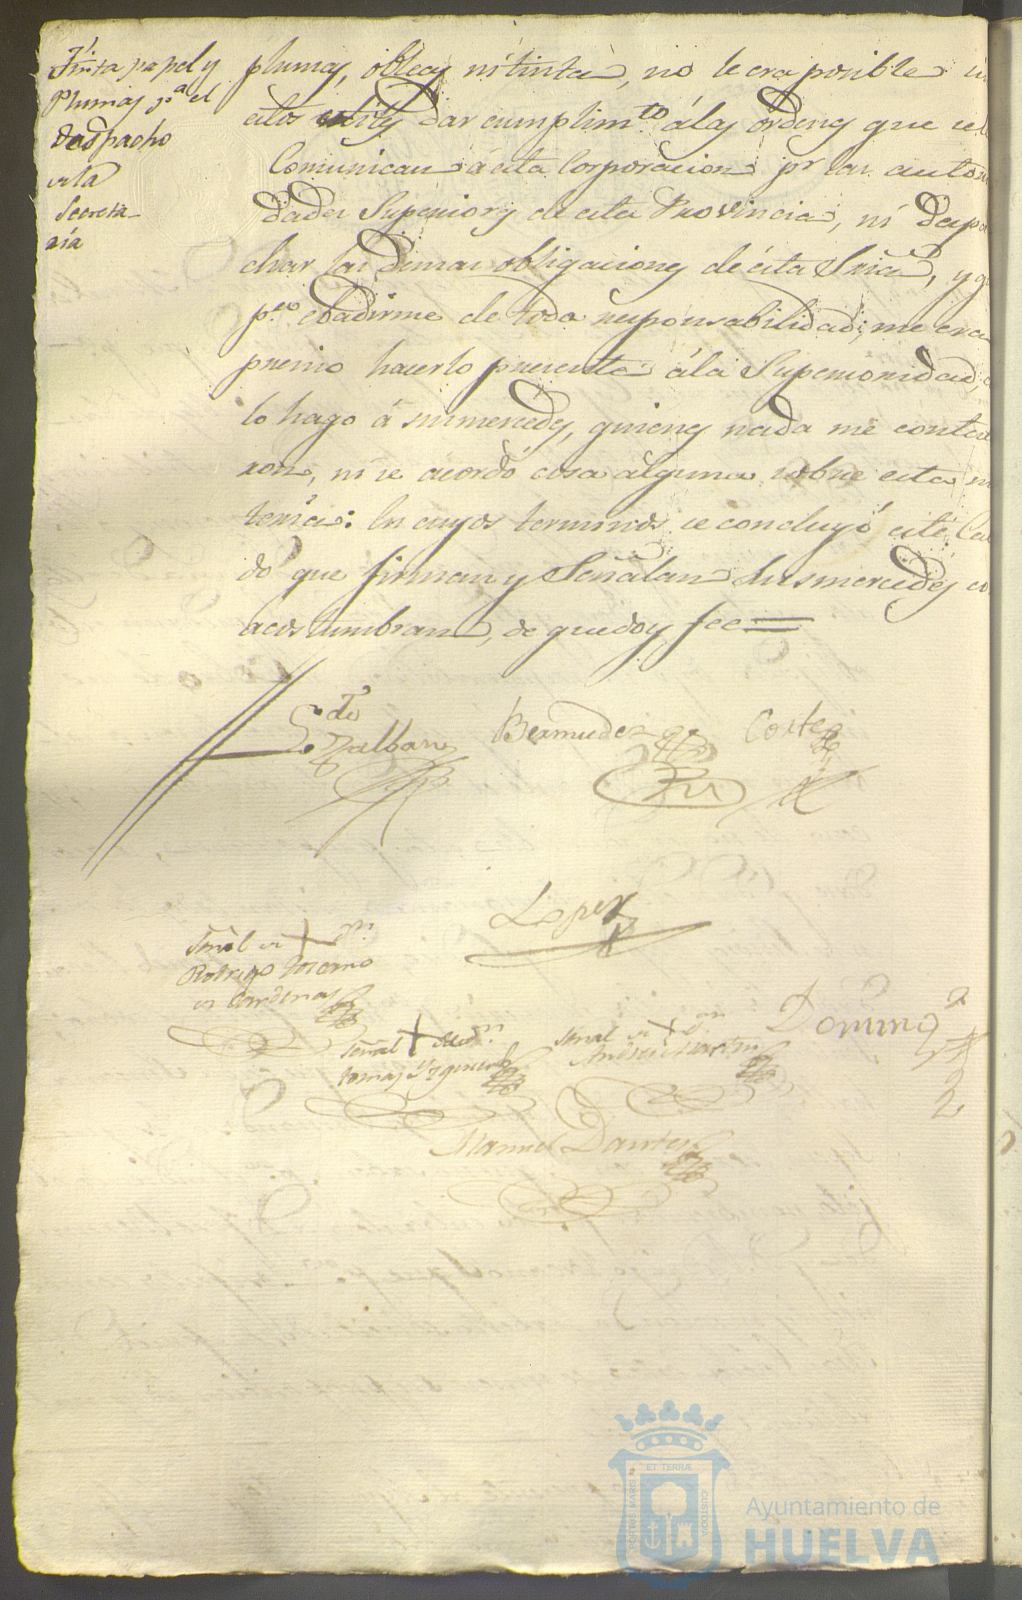 Tinta papel y
Plumas pa. el
Despacho
de la
Secreta
ria
plumas, obleas ni tinta, no le era posible
dar cumplimto. á las órdenes que se le
Comunican á esta Corporacion pr. las autori
dades Superiores de esta Provincia, ni despa
char las demas obligaciones de ésta Sría, y q
pa. ebadirme de toda responsabilidad; me era
preciso hacerlo presente á la Superioridad,
lo hago á sus mercedes, quienes nada me contes
ron, ni se acordó cosa alguna sobre esta ma
teria: En cuyos terminos se concluyó este Ca
do que firman y Señalan sus mercedes co
acostumbran, de que doy fee
Zalban
Bermudez
Cortes
Lopez
Señal de + Dn.
Rodrigo
de Cardenas
Señal + de Dn.
tomas
Señal de + Dn.
Andres Martin
Doming
Manuel Dante
ET TERRÆ
CUSTODIA
PORTUS MARIS
Ayuntamiento de
HUELVA